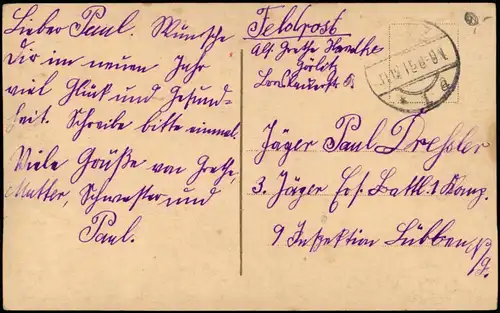 Lieber Paul. Wünsche
Dir im neuen Jahr
viel Glück und Gesund-
heit. Schreibe bitte einmal.
Viele Grüße von Grethe,
Mutter, Schwester und
Paul.
Feldpost
Abs. Grethe
Görlitz
Jäger Paul Dressler
3. Jäger Ers. Battl. 1 Komp.
9 Inspektion Lübben